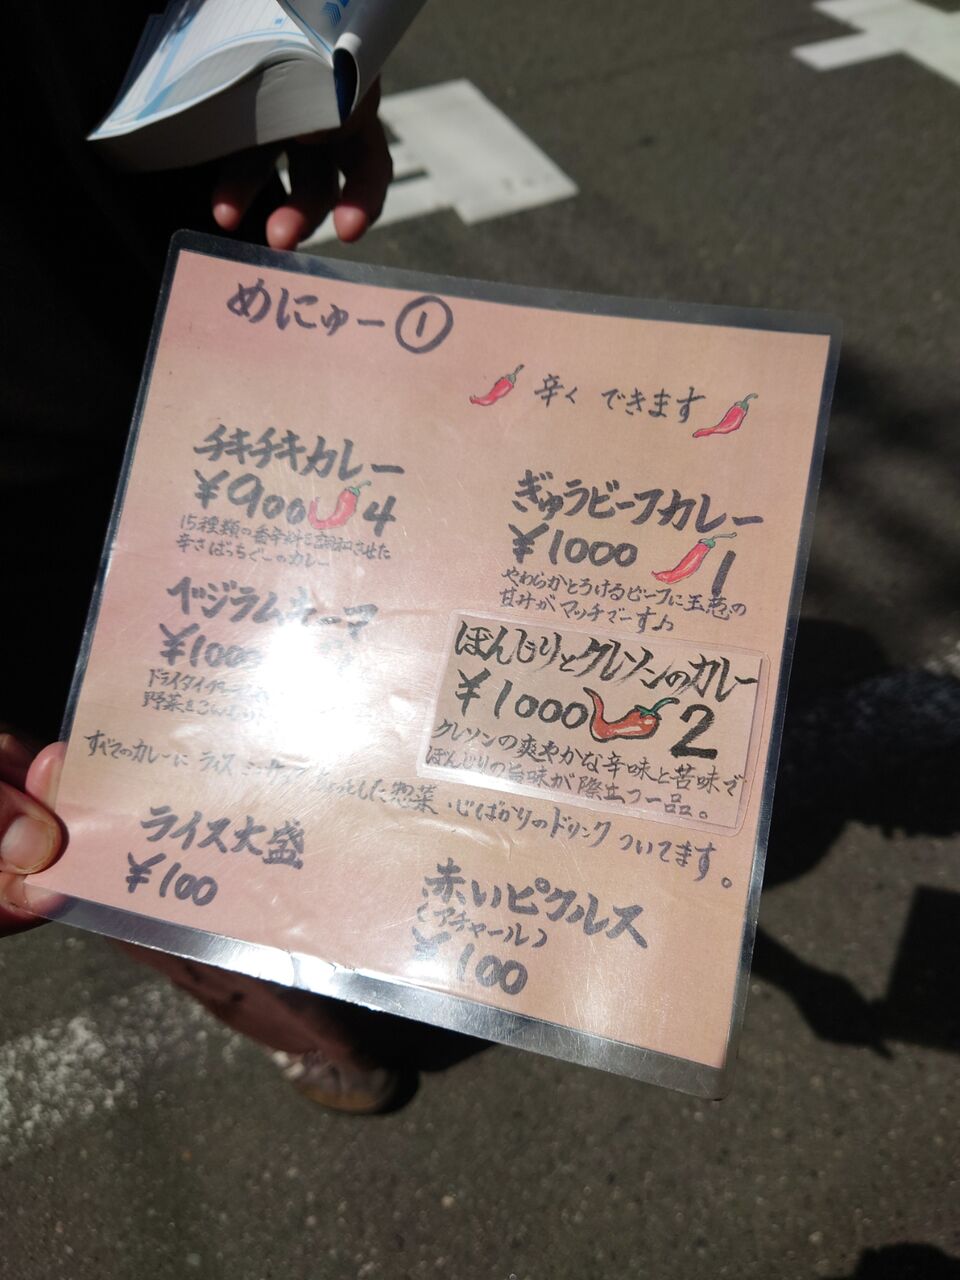 めにゅー①
辛く できます
チキチキカレー
¥900 4
15種類の香辛料を調和させた
辛さばっちぐーのカレー
ぎゅうビーフカレー
¥1000 1
やわらかとろけるビーフに玉葱の
甘みがマッチでーす♪
¥1000
ドライタイプ
野菜を
ぼんじりとクレソンのカレー
¥1000 2
クレソンの爽やかな辛味と苦味で
ぼんじりの旨味が際立つ一品。
すべてのカレーに ライス した惣菜・じばかりのドリンク ついてます。
ライス大盛
¥100
赤いピクルス
(アチャール)
¥100